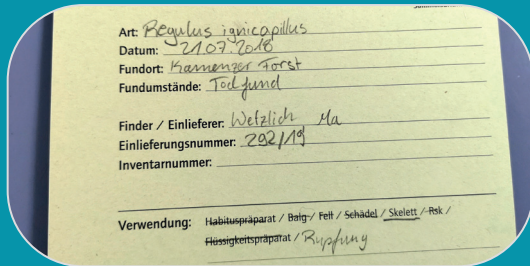 Art: Regulus ignicapillus
Datum: 21.07.2018
Fundort: Kamenzer Forst
Fundumstände: Todfund
Finder / Einlieferer: Wetzlich Ma
Einlieferungsnummer: 292/19
Inventarnummer:
Verwendung: Habituspräparat / Balg / Fell / Schädel / Skelett / Rsk /
Flüssigkeitspräparat / Rupfung